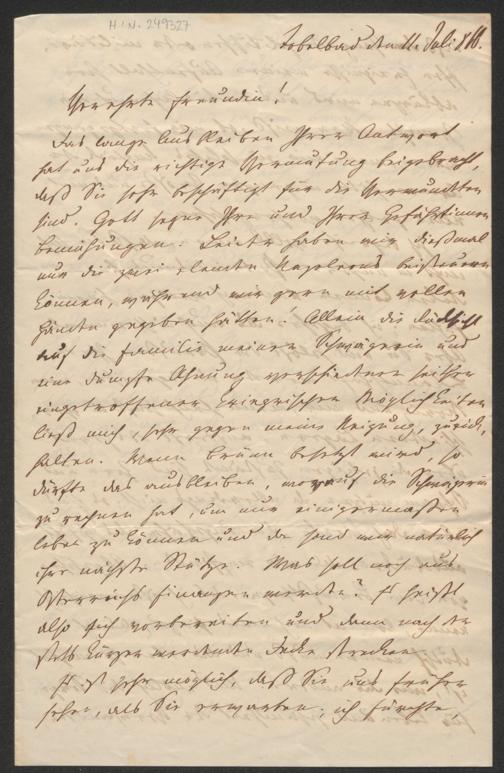 H.I.N. 249327
Tobelbad den 11. Juli 866.
Verehrte Freundin!
Das lange Ausbleiben Ihrer Antwort
hat uns die richtige Vermuthung beigebracht,
daß Sie sehr beschäftigt für die Verwundeten
sind. Gott segne Ihre und Ihrer Gefährtinnen
Bemühungen. Leider haben wir dießmal
nur die zwei elenden Napoleons beisteuern
können, während wir gern mit vollen
Händen gegeben hätten! Allein die Rücksicht
auf die Familie meiner Schwägerin und
eine dumpfe Ahnung verschiedener seither
eingetroffener kriegrischer Möglichkeiten
ließ mich, sehr gegen meine Neigung, zurück-
halten. Wenn Brünn besetzt wird, so
dürfte das ausbleiben, worauf die Schwägerin
zu rechnen hat, um nur einigermaßen
leben zu können und da sind wir natürlich
ihre nächste Stütze. Was soll noch aus
Österreichs Finanzen werden? Es heißt
also sich vorbereiten und dann nach der
stets kürzer werdenden Decke strecken.
Es ist sehr möglich, daß Sie uns früher
sehen, als Sie erwarten; ich fürchte,